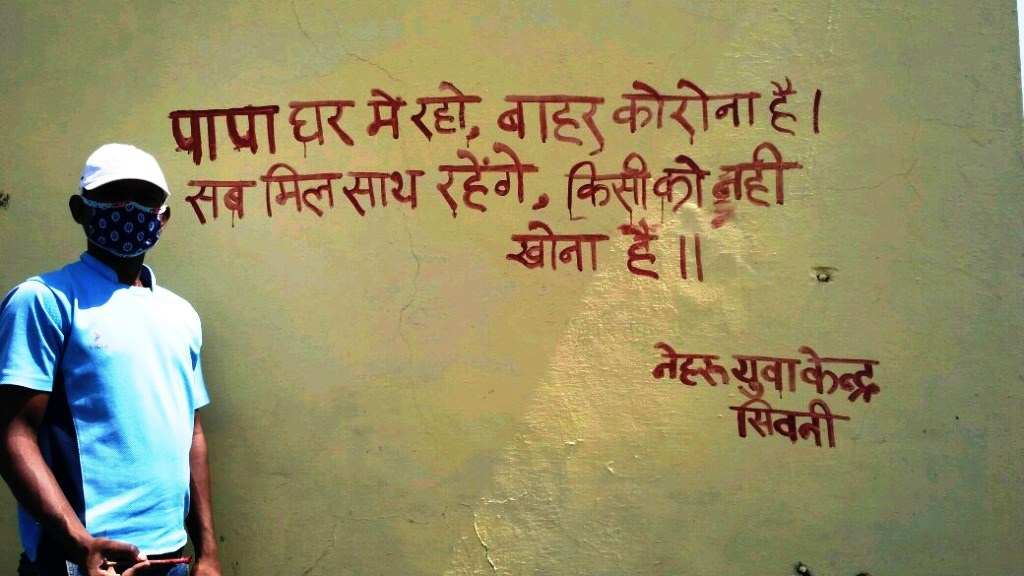 पापा घर में रहो, बाहर कोरोना है।
सब मिल साथ रहेंगे, किसी को नही
खोना है॥
नेहरू युवा केन्द्र
सिवनी